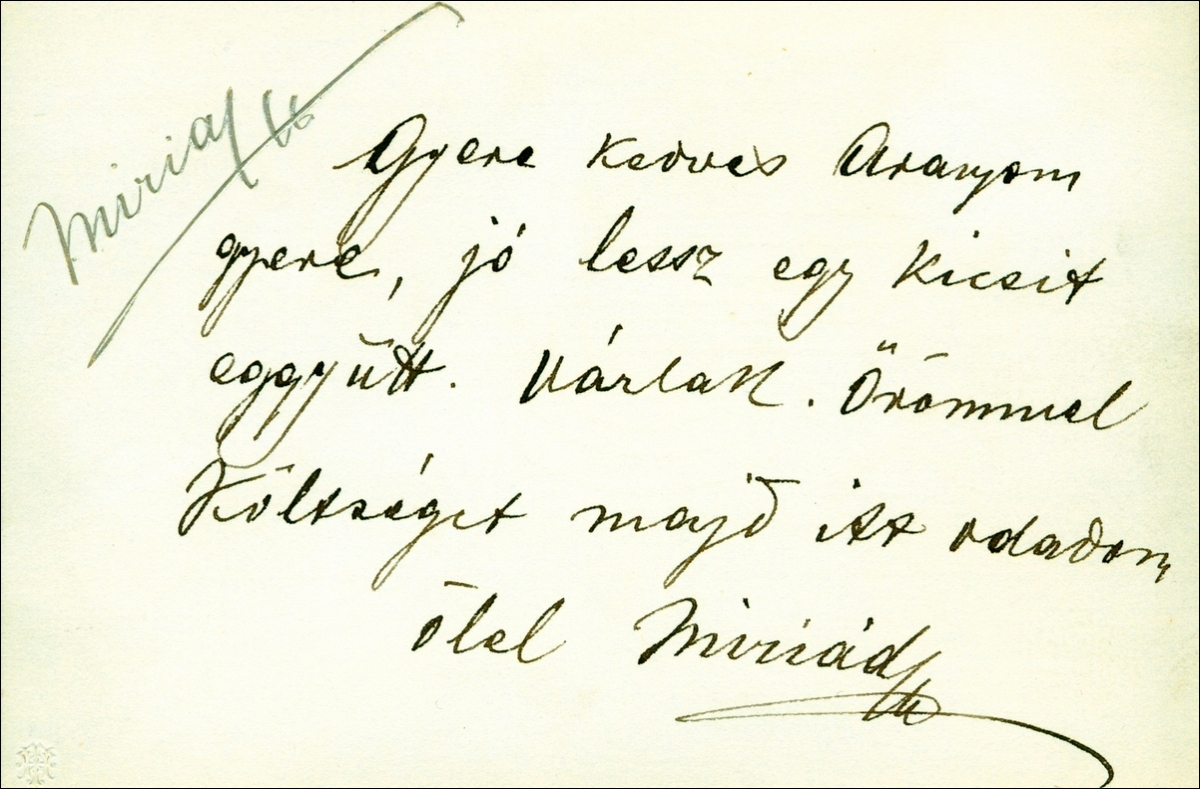 Miriád
Gyere kedves Aranyom
gyere, jó lessz egy kicsit
eggyűtt. Várlak. Örömmel
Költséget majd itt odadom
ölel Miriád